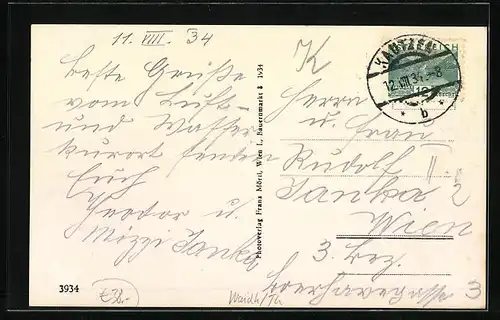 11. VIII. 34
Beste Grüße
vom Luft-
und Wasser
kurort senden
Euch
Theodor u.
Mizzi Janka
K
Herrn
u. Frau
Rudolf
Janka
Wien
3. Bez.
3
KAUTZEN
12. VIII 34 - 8
* b *
12
Photoverlag Franz Mörtl, Wien I., Bauernmarkt 3 1934
3934
Waidh/Th